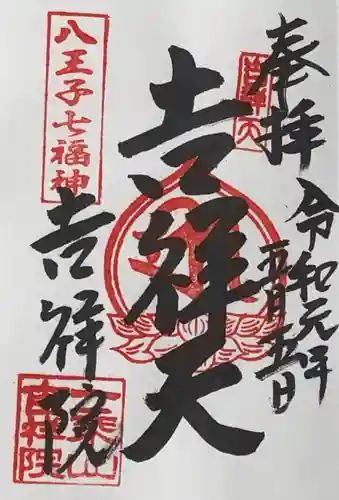 奉拝
令和元年
五月五日
吉祥天
吉祥天
八王子七福神
吉祥院
吉祥院